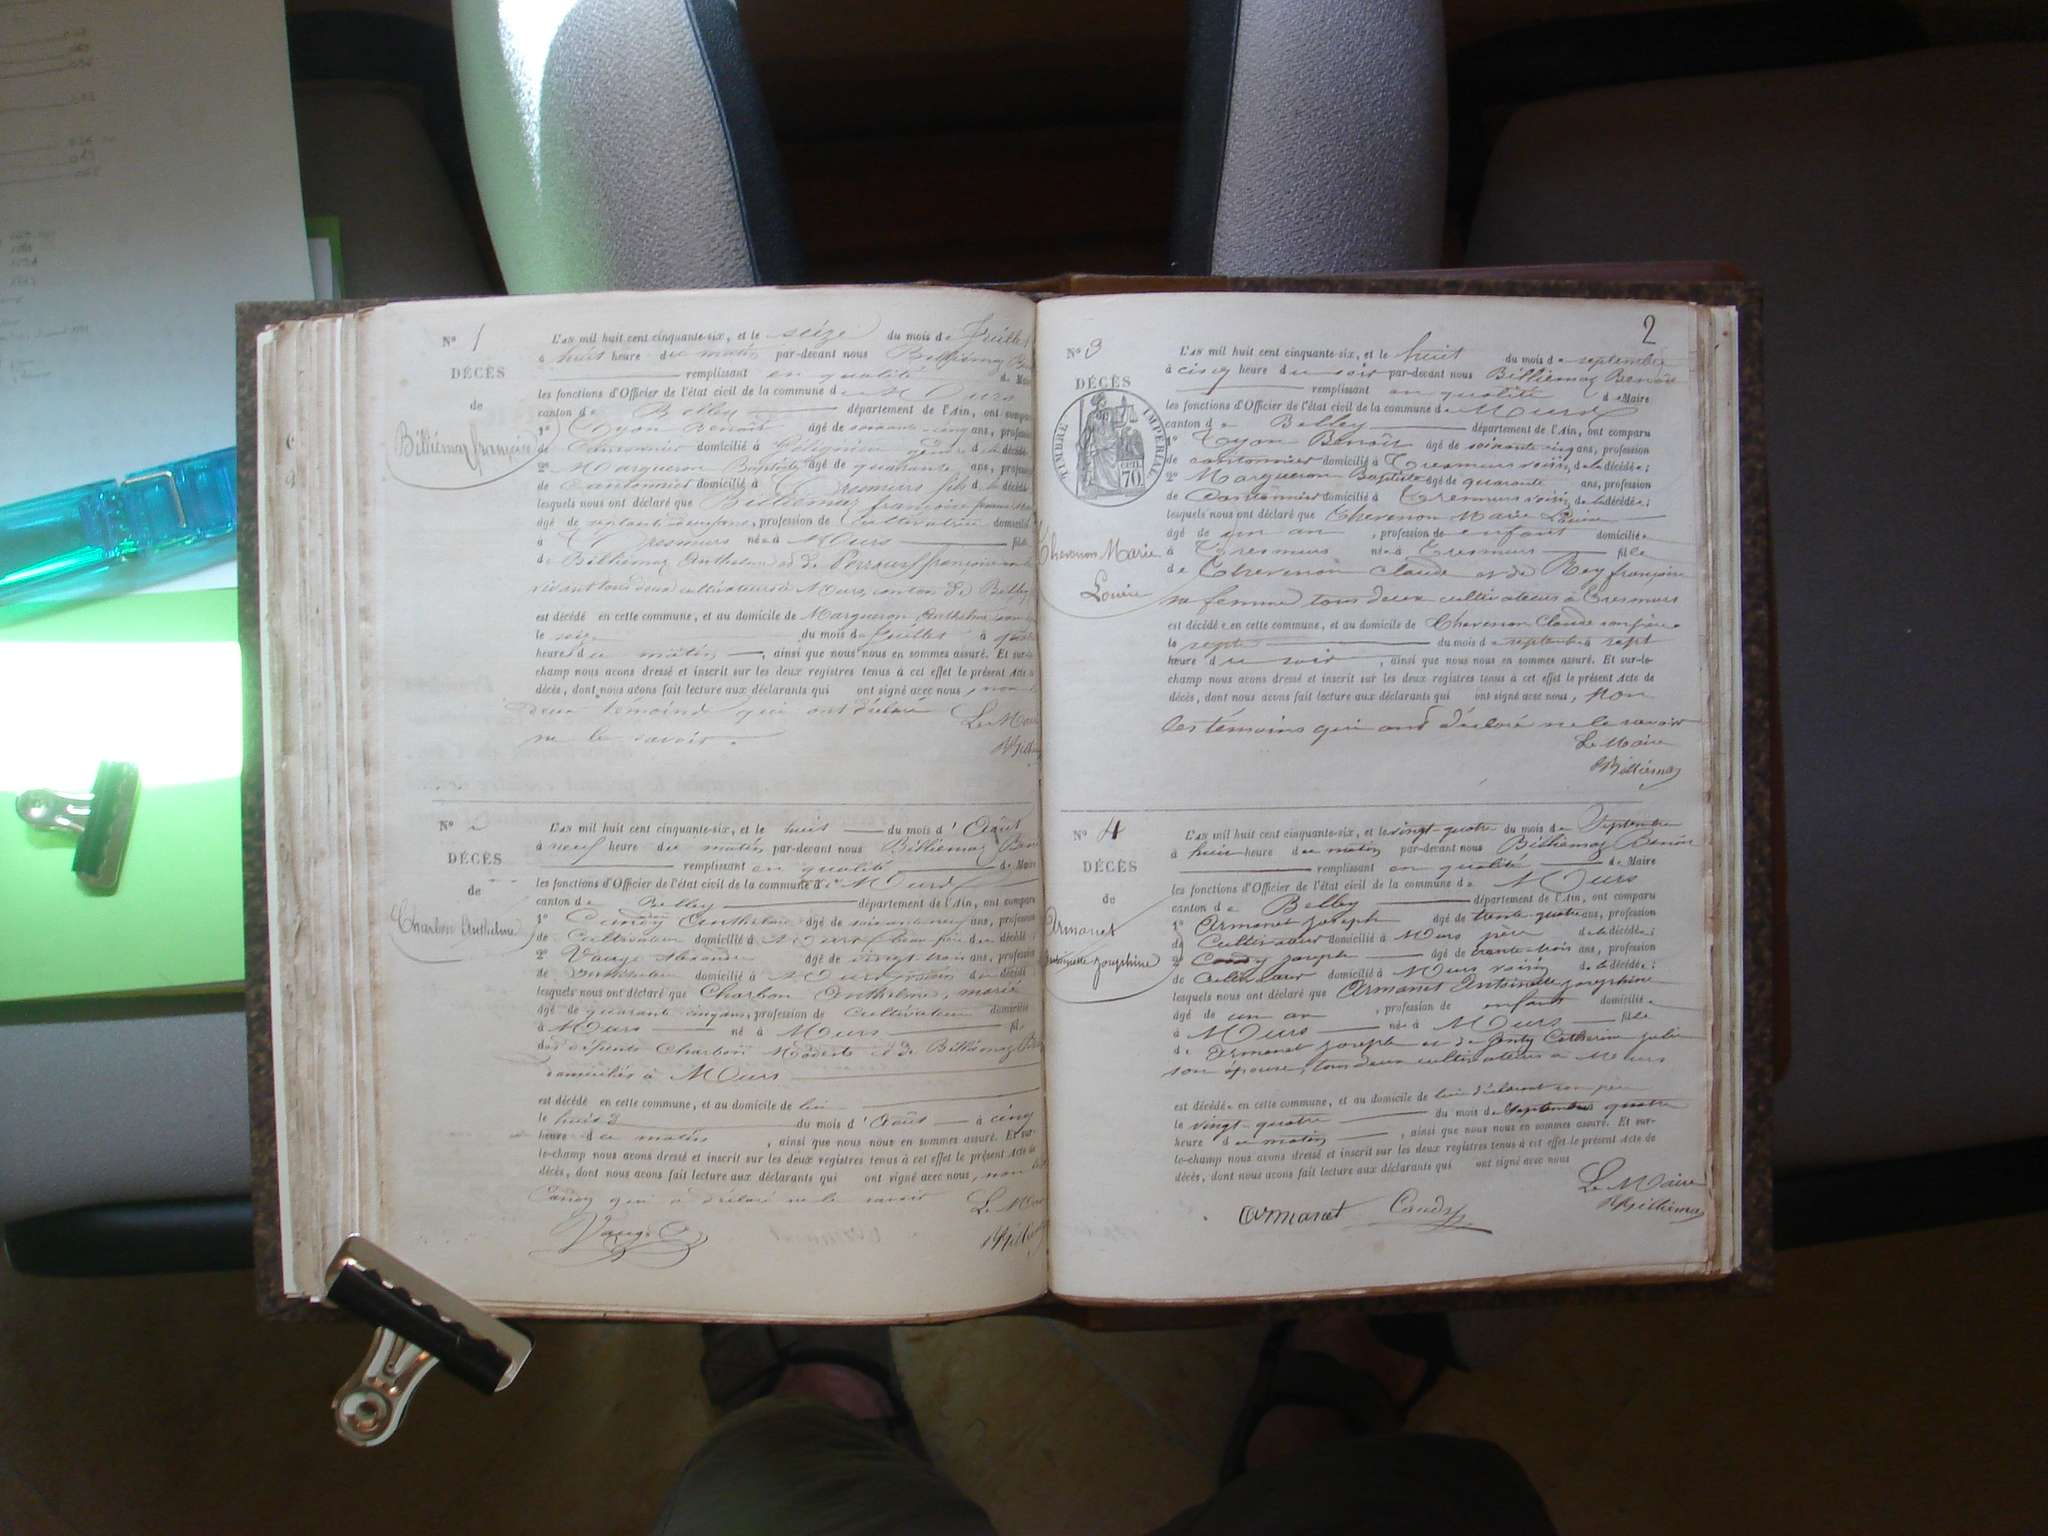 N° 1
DÉCÈS
de
Billiémaz françoise
L'an mil huit cent cinquante-six, et le seize du mois de Juillet
à huit heure du matin par-devant nous Billiémaz
remplissant en qualité de Maire
les fonctions d'Officier de l'état civil de la commune de Murs
canton de Belley département de l'Ain, ont comparu
1° Tyon Benoît âgé de soixante cinq ans, profession
de Cantonnier domicilié à gendre de la décédé
2° Margueron Baptiste âgé de quarante ans, profession
de Cantonnier domicilié à Tresmurs fils de la décédé
lesquels nous ont déclaré que Billiémaz françoise
âgé de ans, profession de Cultivatrice domicilié
à Tresmurs née à Murs fille
de Billiémaz Anthelme et de françoise
vivant tous deux cultivateurs à Murs, canton de Belley
est décédé en cette commune, et au domicile de Margueron Anthelme
le seize du mois de Juillet à
heure du matin, ainsi que nous nous en sommes assuré. Et sur-le-
champ nous avons dressé et inscrit sur les deux registres tenus à cet effet le présent Acte de
décès, dont nous avons fait lecture aux déclarants qui ont signé avec nous, non
deux temoins qui ont déclaré
ne le savoir.
Le Maire
N° 2
DÉCÈS
de
Charbon Anthelme
L'an mil huit cent cinquante-six, et le huit du mois d'Août
à neuf heure du matin par-devant nous Billiémaz
remplissant en qualité de Maire
les fonctions d'Officier de l'état civil de la commune de Murs
canton de Belley département de l'Ain, ont comparu
1° Candy Anthelme âgé de soixante neuf ans, profession
de Cultivateur domicilié à Murs beau père du décédé
2° Vauge Alexandre âgé de vingt trois ans, profession
de domicilié à Murs voisin du décédé
lesquels nous ont déclaré que Charbon Anthelme, marié
âgé de quarante cinq ans, profession de Cultivateur domicilié
à Murs né à Murs fil
des défunts Charbon Modeste et de Billiémaz
domiciliés à Murs
est décédé en cette commune, et au domicile de lui
le huit du mois d'Août à cinq
heure du matin, ainsi que nous nous en sommes assuré. Et sur-
le-champ nous avons dressé et inscrit sur les deux registres tenus à cet effet le présent Acte de
décès, dont nous avons fait lecture aux déclarants qui ont signé avec nous, non
Candy qui a déclaré ne le savoir
Le Maire
Vauge
2
N° 3
DÉCÈS
TIMBRE IMPÉRIAL
CEN. 70
Thevenon Marie
Louise
L'an mil huit cent cinquante-six, et le huit du mois de septembre
à cinq heure du soir par-devant nous Billiemaz Benoît
remplissant en qualité de Maire
les fonctions d'Officier de l'état civil de la commune de Murs
canton de Belley département de l'Ain, ont comparu
1° Tyon Benoît âgé de soixante cinq ans, profession
de cantonnier domicilié à Tresmurs voisin de la décédée;
2° Margueron Baptiste âgé de quarante ans, profession
de Cantonnier domicilié à Tresmurs voisin de la décédée;
lesquels nous ont déclaré que Thevenon Marie Louise
âgé de un an, profession de enfant domiciliée
à Tresmurs née à Tresmurs fille
de Thevenon Claude et de Rey françoise
sa femme, tous deux cultivateurs à Tresmurs
est décédée en cette commune, et au domicile de Thevenon Claude son père
le sept du mois de septembre à sept
heure du soir, ainsi que nous nous en sommes assuré. Et sur-le-
champ nous avons dressé et inscrit sur les deux registres tenus à cet effet le présent Acte de
décès, dont nous avons fait lecture aux déclarants qui ont signé avec nous, Non
les témoins qui ont déclaré ne le savoir
Le Maire
Billiémaz
N° 4
DÉCÈS
de
Armanet
Antoinette Josephine
L'an mil huit cent cinquante-six, et le vingt-quatre du mois de Septembre
à huit heure du matin par-devant nous Billiemaz Benoît
remplissant en qualité de Maire
les fonctions d'Officier de l'état civil de la commune de Murs
canton de Belley département de l'Ain, ont comparu
1° Armanet Joseph âgé de trente-quatre ans, profession
de Cultivateur domicilié à Murs père de la décédée;
2° Candy Joseph âgé de trente-trois ans, profession
de Cultivateur domicilié à Murs voisin de la décédée;
lesquels nous ont déclaré que Armanet Antoinette Josephine
âgé de un an, profession de enfant domiciliée
à Murs née à Murs fille
de Armanet Joseph et de Genty Catherine Julie
son épouse, tous deux cultivateurs à Murs
est décédée en cette commune, et au domicile de son père
le vingt-quatre du mois de septembre à quatre
heure du matin, ainsi que nous nous en sommes assuré. Et sur-
le-champ nous avons dressé et inscrit sur les deux registres tenus à cet effet le présent Acte de
décès, dont nous avons fait lecture aux déclarants qui ont signé avec nous
Le Maire
Billiémaz
Armanet Candy